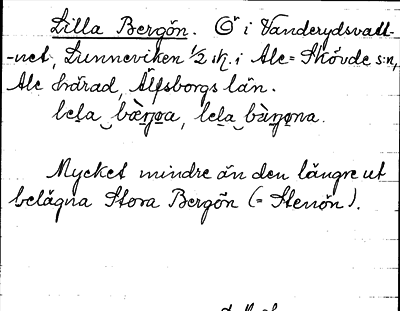 Lilla Bergön. Ö i Vanderydsvatt-
-net, Lunneviken 1/2 i Ale-Skövde s:n,
Ale härad, Älfsborgs län.
lela
Mycket mindre än den längre ut
belägna Stora Bergön (= Stenön).